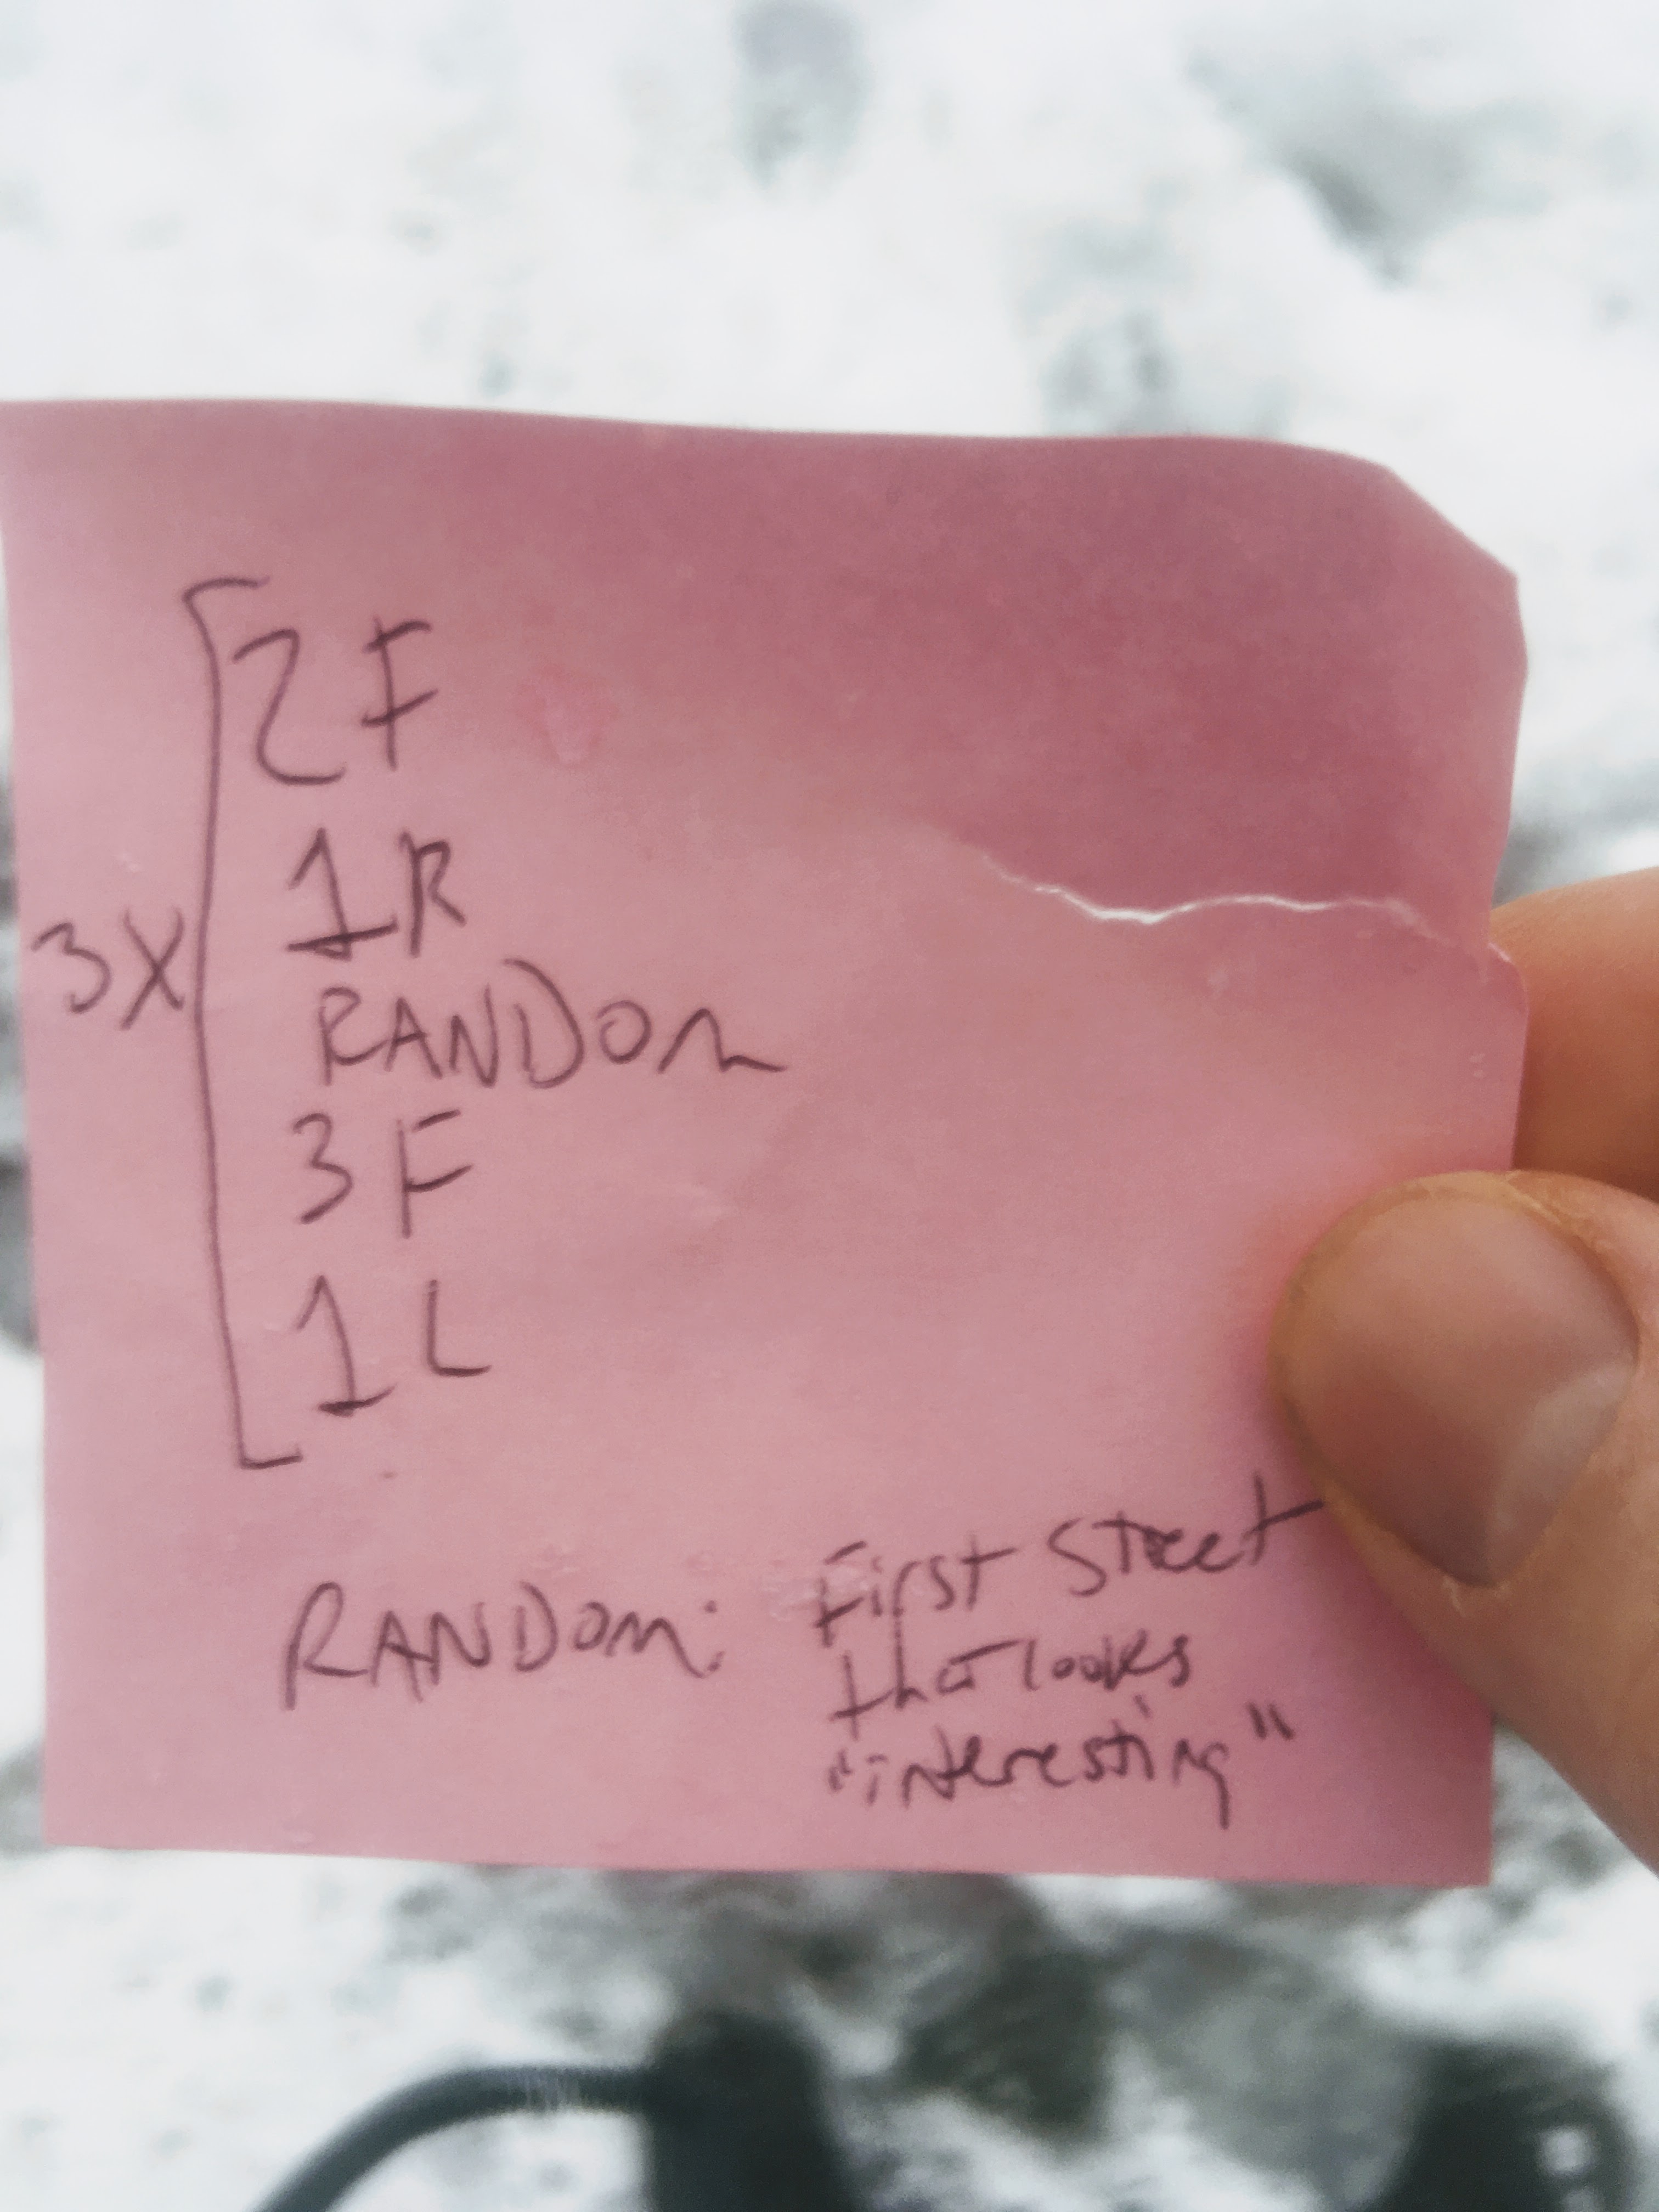 2F
1R
3X
RANDOM
3F
1L
RANDOM: First Street
that looks
"interesting"